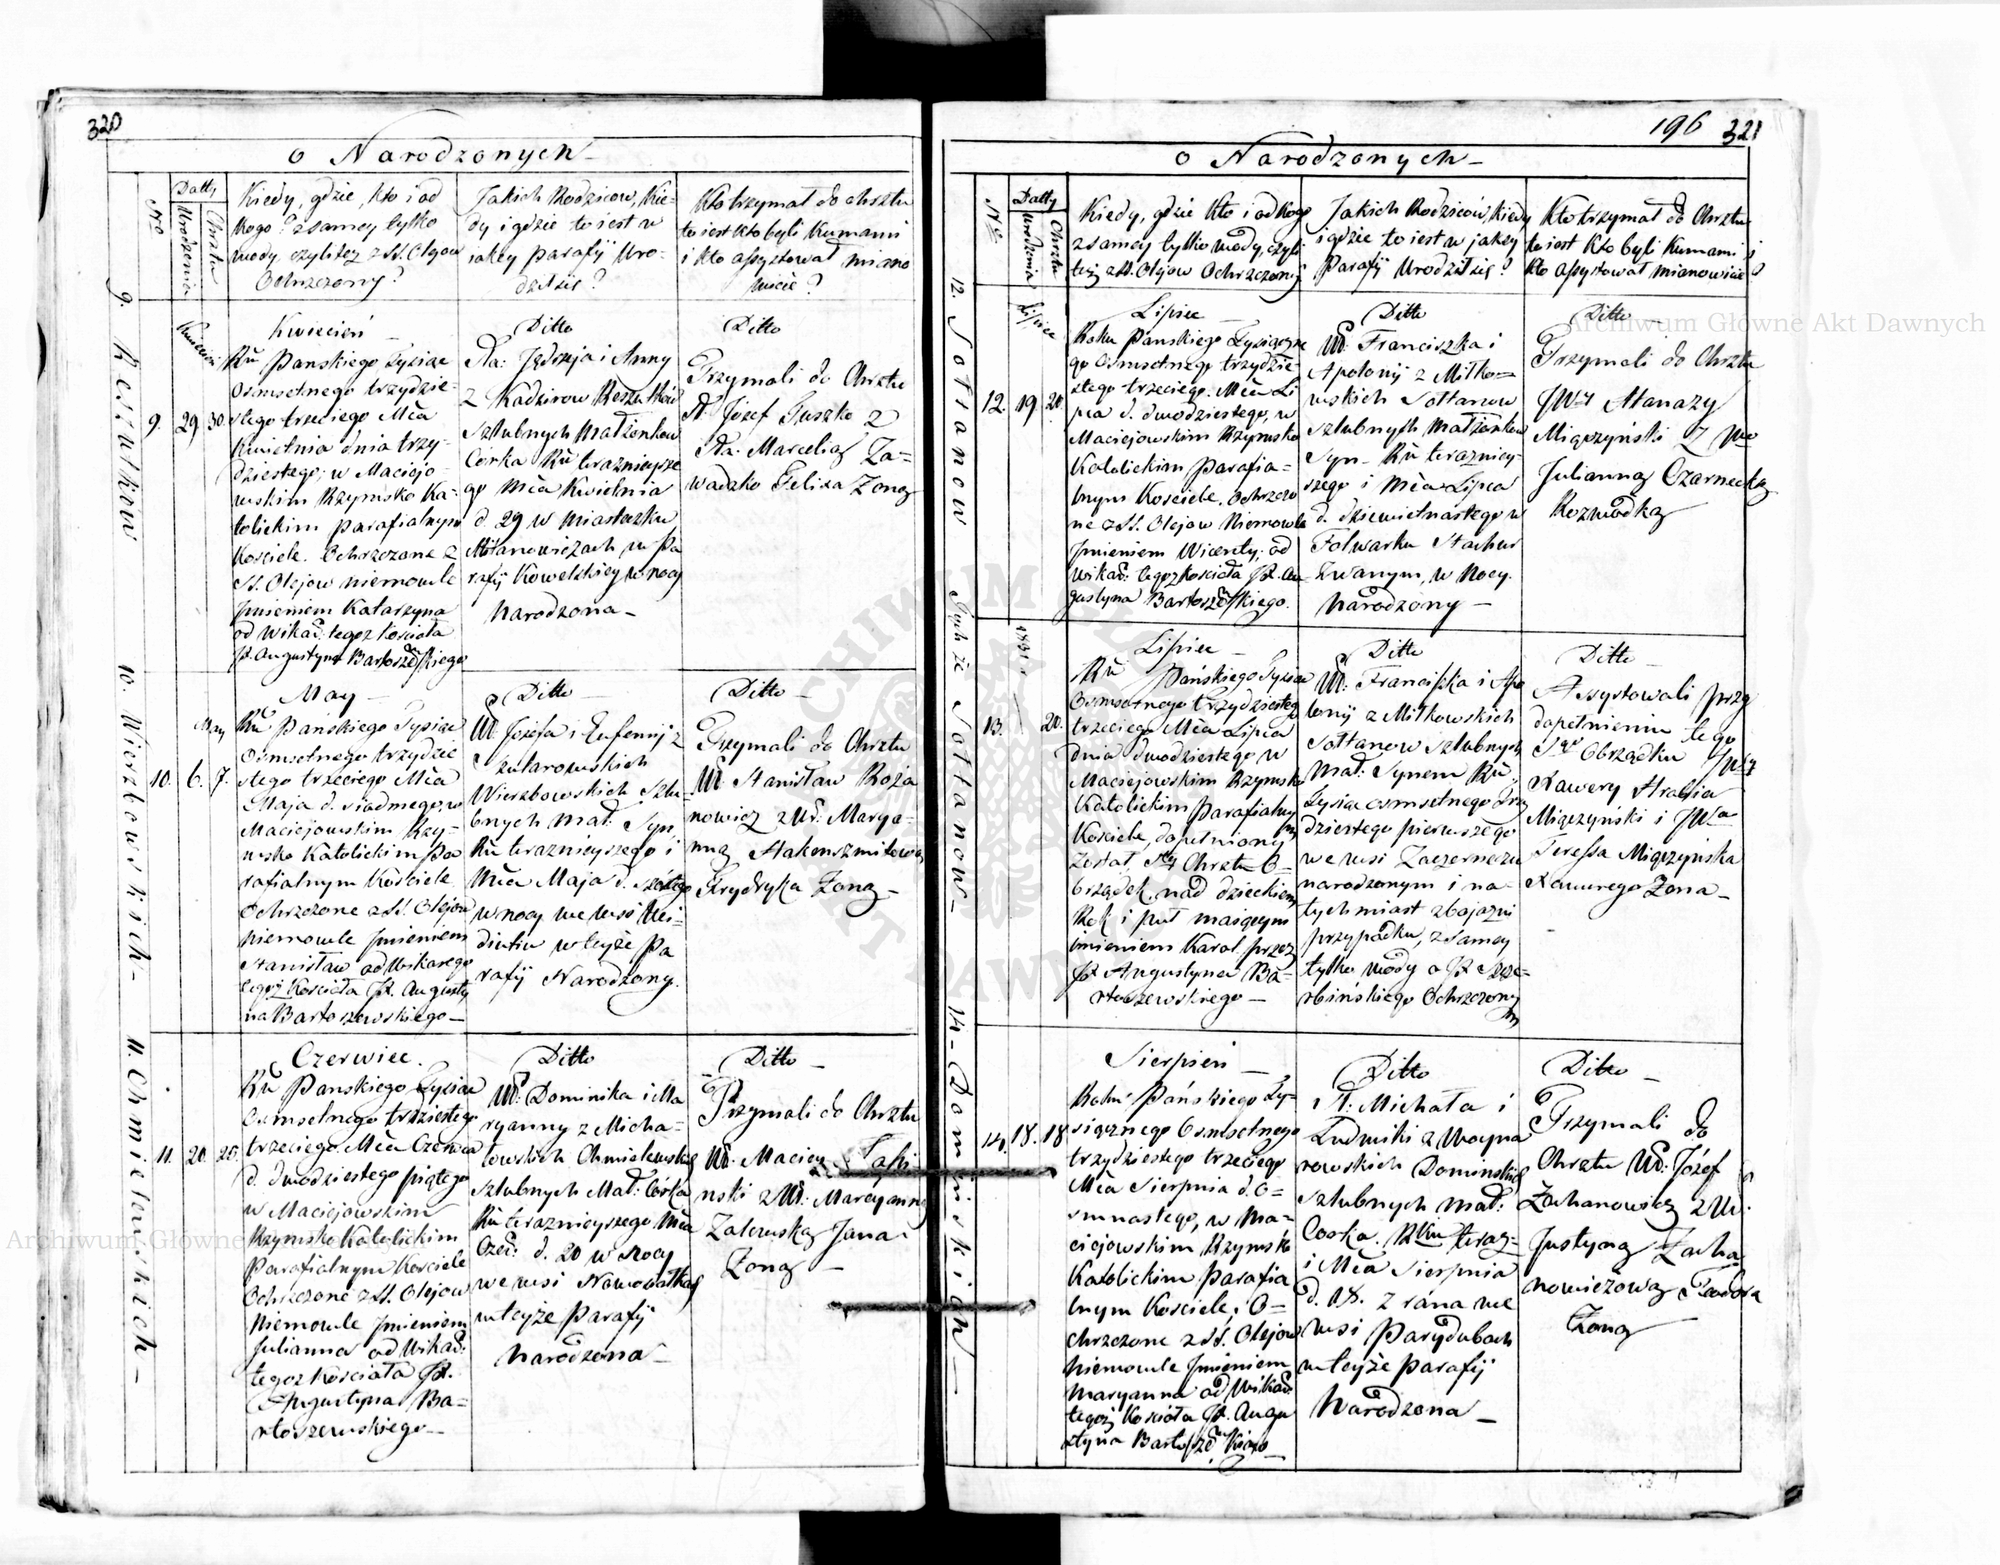 320
o Narodzonych
Nro
Datty
Urodzenia
Chrztu
Kiedy, gdzie, Kto i od
Kogo? z samey tylko
wody czyli tez z SS. Olejow
Ochrzczony?
Jakich Rodzicow, Kie-
dy i gdzie to iest w
iakey parafij Uro-
dził się?
Kto trzymał do chrztu
to iest kto byli Kumami
i kto assystował miano
wicie?
9. Reszutków
Kwiecień
9.
29
30.
Kwiecień
Ru Panskiego Tysiąc
Osmsetnego trzydzie-
stego trzeciego Mca
Kwietnia dnia trzy-
dziestego, w Maciejo-
wskim Rzymsko Ka-
tolickim parafialnym
Kościele. Ochrzczone z
SS. Olejow niemowle
Jmieniem Katarzyna
od Wikar: tegoz kościoła
JX. Augustyna Bartoszewskiego
Ditto
Jędrzeja i Anny
Reszutków
Szlubnych Małżonkow
Corka Ru teraznieysze
go Mca Kwietnia
d. 29 w miasteczku
Milanowiczach w Pa
rafij Kowelskiey w nocy
Narodzona
Ditto
Trzymali do Chrztu
Józef Puszko z
Marcellą Za=
wadzko Felixa Żoną
10. Wierzbowskich
May
10.
6.
7.
May
Ru Pańskiego Tysiąc
Osmsetnego trzydzie
stego trzeciego Mca
Maja d. siodmego, w
Maciejowskim Rzy-
msko Katolickim Pa
rafialnym Kościele
Ochrzczone z SS. Olejow
Niemowle Jmieniem
Stanisław od Wikarego
tegoż Kościoła JX. Augusty
na Bartoszewskiego
Ditto
Józefa i Eufemij z
Wierzbowskich Szlu-
bnych Mał: Syn,
Ru teraznieyszego i
Mca Maja d. szóstego
w nocy we wsi
w teyże Pa
rafij Narodzony.
Ditto
Trzymali do Chrztu
Ur. Stanisław Roża
nowicz z Ur: Marya-
nną
Frydryka Żoną
11. Chmielewskich
11.
20.
25.
Czerwiec.
Ru Panskiego Tysiąc
Osmsetnego trzdziestego
trzeciego Mca Czerwca
d. dwudziestego piątego
w Maciejowskim
Rzymsko Katolickim
Parafialnym Kościele
Ochrzczone z SS. Olejow
Niemowle Jmieniem
Julianna od Wikar:
tegoz Kościoła JX.
Augustyna Ba=
rtoszewskiego
Ditto
Ur: Dominika i Ma
ryanny z Micha-
łowskich Chmielewskich
Szlubnych Mał: Córka
Ru teraznieyszego Mca
Czer: d. 20 w Nocy
we wsi
w teyże Parafij
Narodzona
Ditto
Trzymali do Chrztu
Ur. Maciey
nski z Ur: Maryanną
Zalewską Jana
Żoną
196
321
o Narodzonych
Nro
Datty
Urodzenia
Chrztu
Kiedy, gdzie Kto i od Kogo
z samey tylko wody, czyli
też z SS. Olejow Ochrzczony
Jakich Rodziców, kiedy
i gdzie to iest w jakiey
Parafij Urodził się?
Kto trzymał do Chrztu
to iest Kto byli Kumami i
kto assystował mianowicie?
12. Sołtanow
Lipiec
12.
19
20.
Lipiec
Roku Panskiego Tysiączne
go Osmsetnego trzydzie
stego trzeciego. Mca Li
pca d. dwudziestego, w
Maciejowskim Rzymsko
Katolickim Parafia-
lnym Kościele. Ochrzczo
ne z SS. Olejow Niemowle
Jmieniem Wicenty, od
Wikar: tegoz kościoła JX. Au-
gustyna Bartoszewskiego.
Ditto
Ur: Franciszka i
Apolonij z Miłko=
wskich Sołtanow
Szlubnych Małżonkow
Syn Ru terazniey-
szego i Mca Lipca
d. dziewietnastego w
Folwarku Stachur
Zwanym, w Nocy.
Narodzony
Ditto
Trzymali do Chrztu
JWy Atanazy
Miączyński z
Julianną Czarnecką
Rozwodką
Tychże Sołtanow
1831 r
13.
20.
Lipiec
Ru Pańskiego Tysiąc
Osmsetnego Trzydziestego
trzeciego Mca Lipca
dnia dwudziestego w
Maciejowskim Rzymsko
Katolickim Parafialnym
Kościele, dopełniony
Został Sty Chrztu O=
brządek nad dzieckiem
Rok i puł maiącym
imieniem Karol przez
JX Augustyna Ba=
rtoszewskiego
Ditto
Ur: Franciszka i Apo
lonij z Miłkowskich
Sołtanow Szlubnych
Mał: Synem Ru
Tysiąc osmsetnego Trzy
dziestego pierwszego
we wsi Zaczerneczu
narodzonym i na-
tychmiast z bojazni
przypadku, z samey
tylko wody o JX
rbińskiego Ochrzczonym
Ditto
Assystowali przy
dopełnieniu tego
Sgo Obrządku JWy
Xawery Hrabia
Miączyński i JWa
Teressa Miączyńska
Xawerego Żona
14 Dominskich
14.
18.
18
Sierpień
Roku Pańskiego Ty-
siącznego Osmsetnego
trzydziestego trzeciego
Mca Sierpnia d. O=
smnastego, w Ma-
ciejowskim Rzymsko
Katolickim Parafia
lnym Kościele, O=
chrzczone z SS. Olejow
Niemowle Jmieniem
Maryanna od Wikar:
tegoż Kościoła JX. Augu
styna Bartoszewskiego
Ditto
Michała i
Ludwiki z Woyna
rowskich Dominskich
szlubnych mał:
Corka. Rku teraz-
i Mca Sierpnia
d. 18. z rána we
wsi Parydubach
w teyże Parafij
Narodzona
Ditto
Trzymali do
Chrztu Ur: Józef
Zachanowicz z Ur:
Justyną Zacha
nowiczową Teodora
Żoną
Archiwum Główne Akt Dawnych